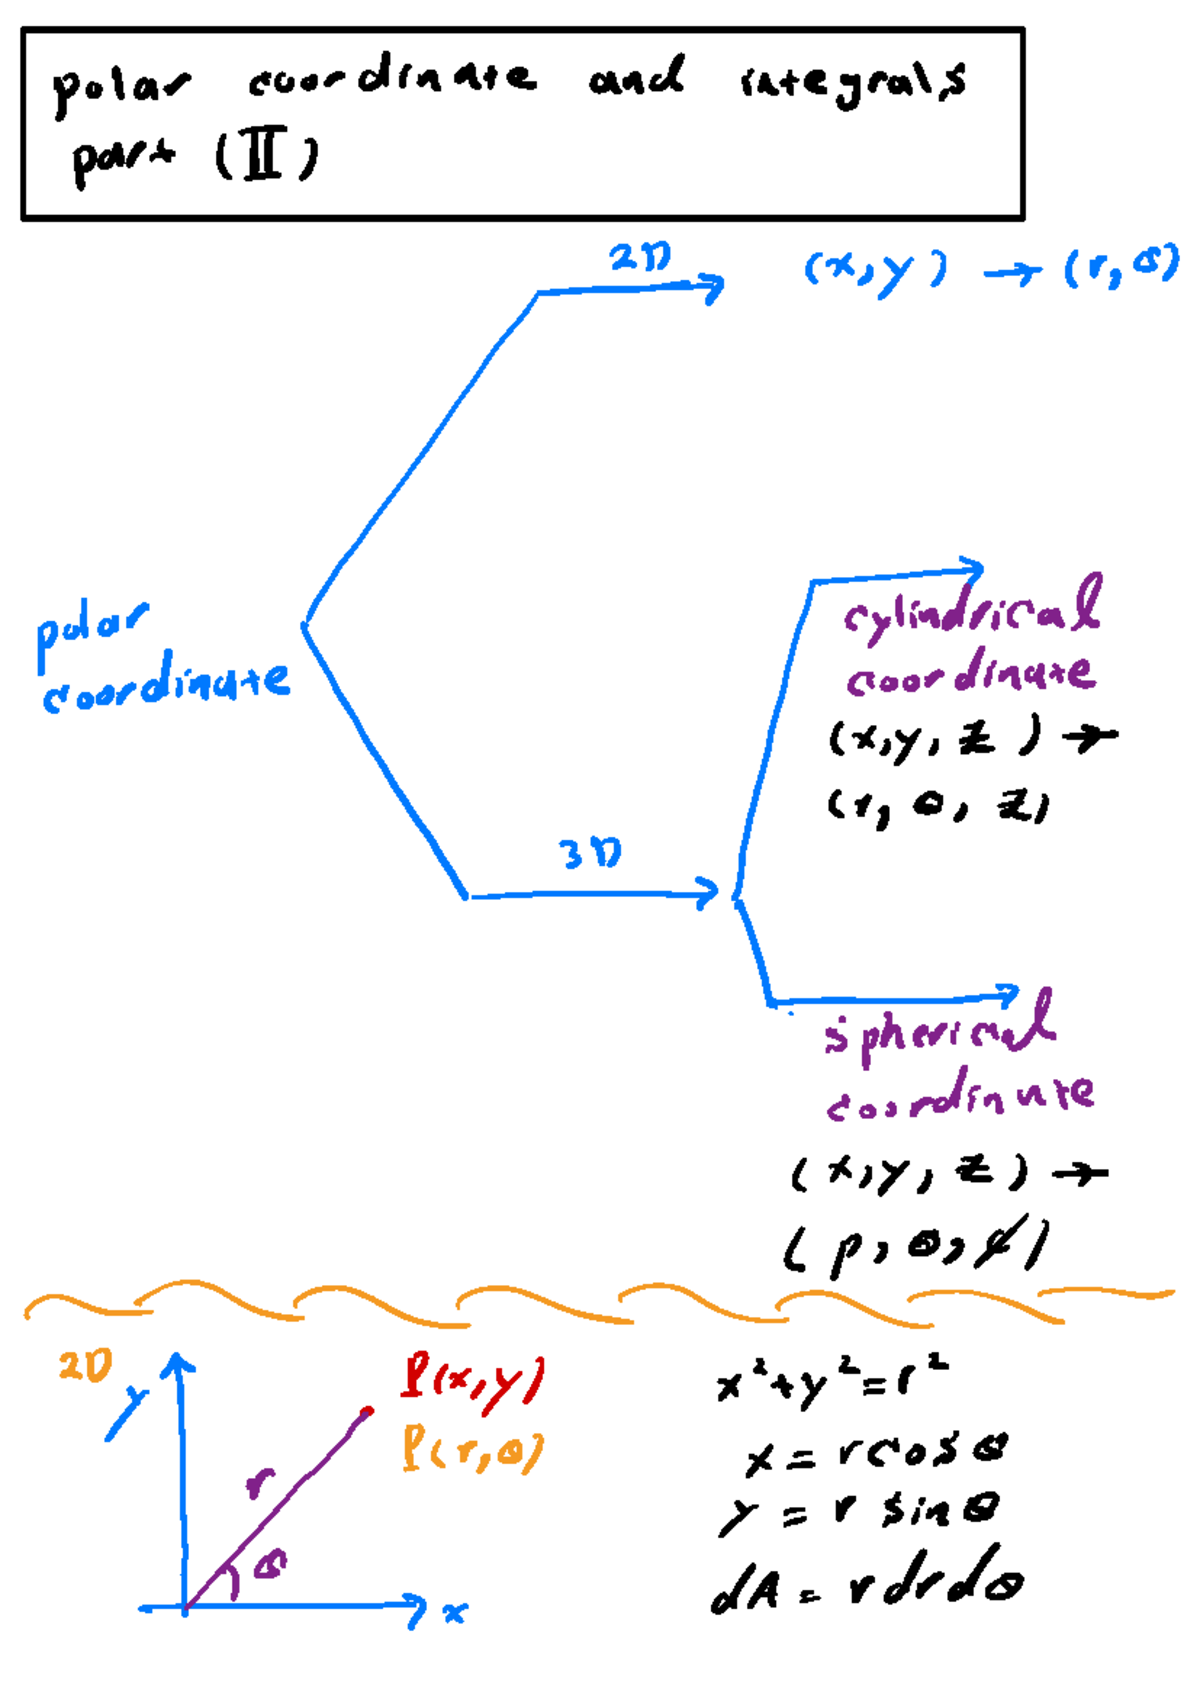 polar coordinate and integrals
part (II)
2D
(x,y) → (r,θ)
polar
coordinate
cylindrical
coordinate
(x,y,z) →
(r,θ,z)
3D
spherical
coordinate
(x,y,z) →
(ρ,θ,φ)
2D
y
P(x,y)
P(r,θ)
r
θ
x
x²+y²=r²
x = rcosθ
y = r sinθ
dA = rdrdθ